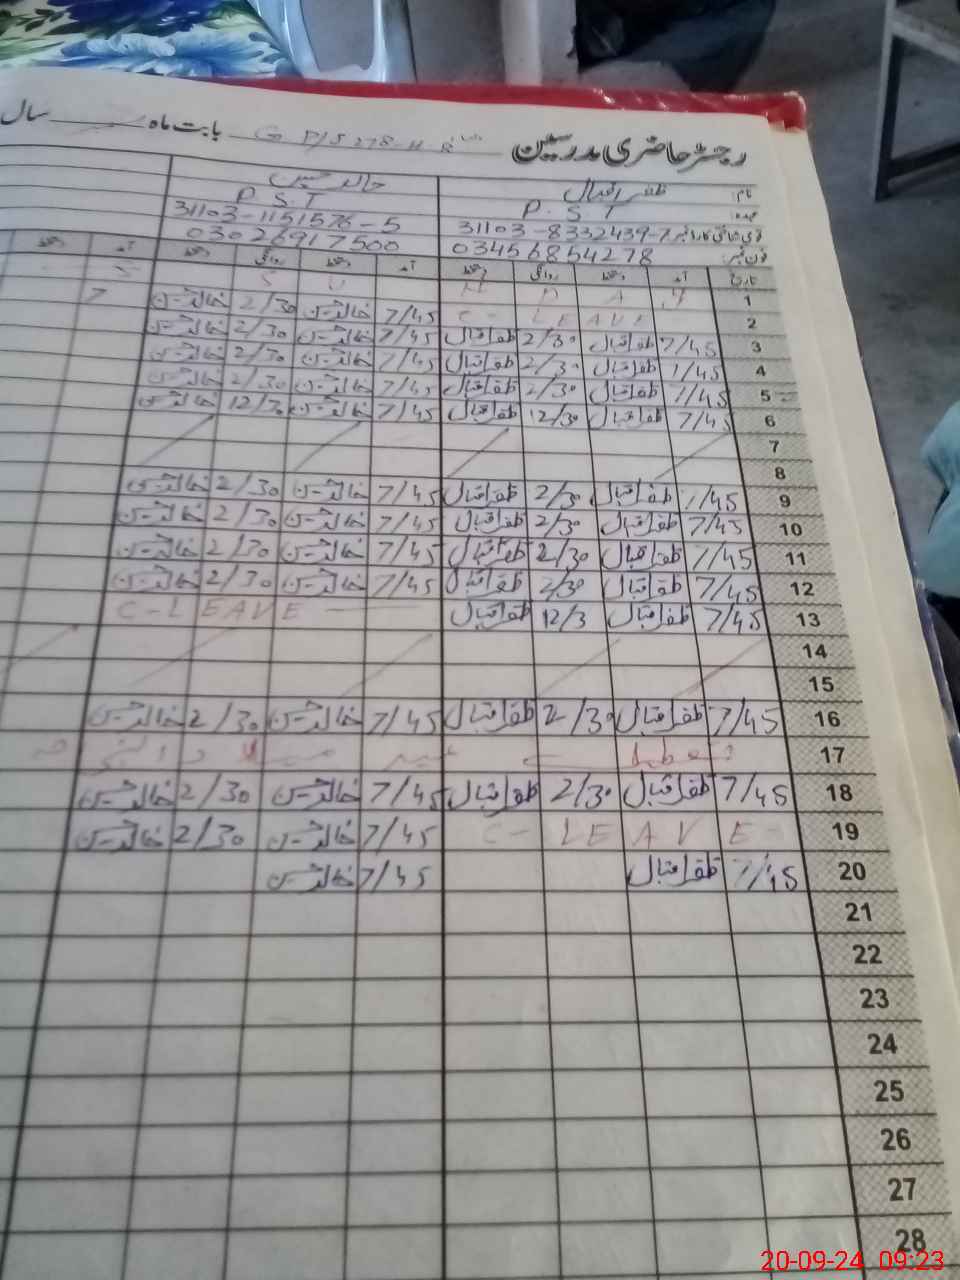 رجسٹر حاضری مدرسین بابت ماہ G P/S 278-H R سال
نام: ظفر اقبال خالد حسین
عہدہ: P.S.T P.S.T
قومی شناختی کارڈ نمبر 31103-8332439-7 31103-1151576-5
فون نمبر: 03456854278 03026917500
تاریخ آمد دستخط روانگی دستخط آمد دستخط روانگی دستخط آمد دستخط
1
2 C- LEAVE 7/45 خالد حسین 2/30 خالد حسین
3 7/45 ظفر اقبال 2/30 ظفر اقبال 7/45 خالد حسین 2/30 خالد حسین
4 7/45 ظفر اقبال 2/30 ظفر اقبال 7/45 خالد حسین 2/30 خالد حسین
5 7/45 ظفر اقبال 2/30 ظفر اقبال 7/45 خالد حسین 2/30 خالد حسین
6 7/45 ظفر اقبال 12/30 ظفر اقبال 7/45 خالد حسین 12/30 خالد حسین
7
8
9 7/45 ظفر اقبال 2/30 ظفر اقبال 7/45 خالد حسین 2/30 خالد حسین
10 7/45 ظفر اقبال 2/30 ظفر اقبال 7/45 خالد حسین 2/30 خالد حسین
11 7/45 ظفر اقبال 2/30 ظفر اقبال 7/45 خالد حسین 2/30 خالد حسین
12 7/45 ظفر اقبال 2/30 ظفر اقبال 7/45 خالد حسین 2/30 خالد حسین
13 7/45 ظفر اقبال 12/3 ظفر اقبال C-LEAVE
14
15
16 7/45 ظفر اقبال 2/30 ظفر اقبال 7/45 خالد حسین 2/30 خالد حسین
17 تعطیل عید میلاد النبی
18 7/45 ظفر اقبال 2/30 ظفر اقبال 7/45 خالد حسین 2/30 خالد حسین
19 C- LEAVE 7/45 خالد حسین 2/30 خالد حسین
20 7/45 ظفر اقبال 7/45 خالد حسین
21
22
23
24
25
26
27
28
20-09-24 09:23